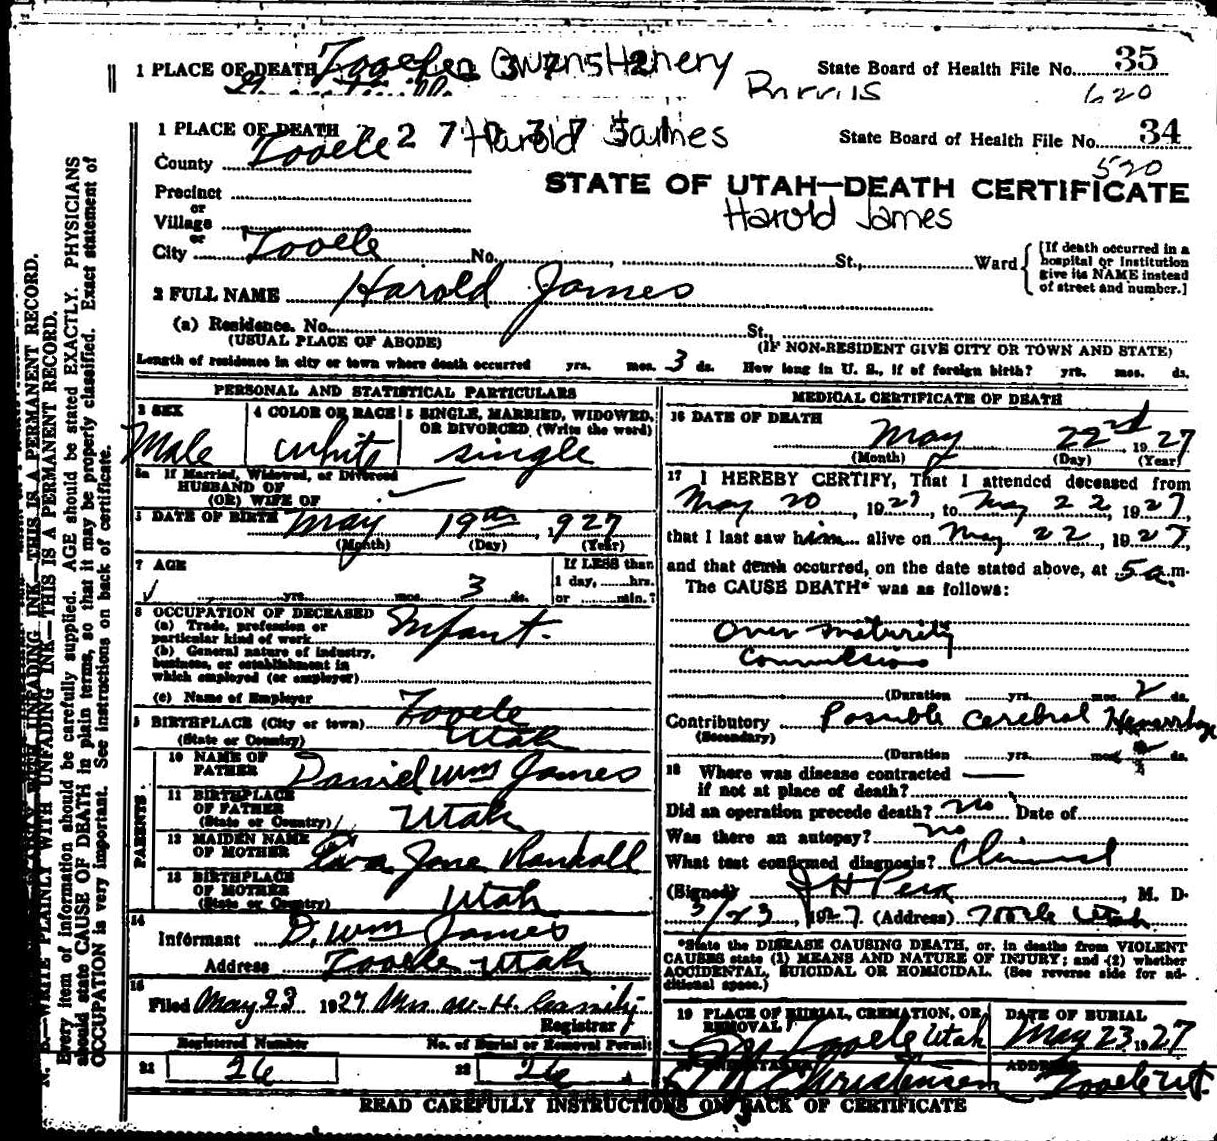 1 PLACE OF DEATH Tooele Owens Henery State Board of Health File No. 35
Parris 620
1 PLACE OF DEATH 2 7 Harold James State Board of Health File No. 34
County Tooele 520
Precinct STATE OF UTAH—DEATH CERTIFICATE
or Harold James
Village
or
City Tooele No. St., Ward [If death occurred in a hospital or Institution give its NAME instead of street and number.]
2 FULL NAME Harold James
(a) Residence. No. St.,
(USUAL PLACE OF ABODE) (IF NON-RESIDENT GIVE CITY OR TOWN AND STATE)
Length of residence in city or town where death occurred yrs. mos. 3 ds. How long in U. S., if of foreign birth? yrs. mos. ds.
PERSONAL AND STATISTICAL PARTICULARS
3 SEX Male
4 COLOR OR RACE White
5 SINGLE, MARRIED, WIDOWED, OR DIVORCED (Write the word) single
5a If Married, Widowed, or Divorced
HUSBAND OF
(OR) WIFE OF
DATE OF BIRTH May 19th, 927
(Month) (Day) (Year)
7 AGE yrs. mos. 3 ds.
If LESS than
1 day, hrs.
or min.?
8 OCCUPATION OF DECEASED Infant.
(a) Trade, profession or
particular kind of work
(b) General nature of industry,
business, or establishment in
which employed (or employer)
(c) Name of Employer
BIRTHPLACE (City or town) Tooele
(State or Country) Utah
PARENTS
10 NAME OF FATHER Daniel Wm James
11 BIRTHPLACE OF FATHER (State or Country) Utah
12 MAIDEN NAME OF MOTHER Eva Jane Randall
13 BIRTHPLACE OF MOTHER (State or Country) Utah
14
Informant D. Wm James
Address Tooele Utah
15
Filed May 23 1927 Mrs
Registrar
Registered Number No. of Burial or Removal Permit
21 26 22 26
MEDICAL CERTIFICATE OF DEATH
16 DATE OF DEATH
May 22nd, 1927
(Month) (Day) (Year)
17 I HEREBY CERTIFY, That I attended deceased from
May 20, 1927, to May 22, 1927,
that I last saw him alive on May 22, 1927,
and that death occurred, on the date stated above, at 5 a.m.
The CAUSE DEATH* was as follows:
Over maturity
Convulsions
(Duration yrs. mos. 2 ds.
Contributory Possible Cerebral Hemorrhage
(Secondary)
(Duration yrs. mos. ds.
18 Where was disease contracted
if not at place of death?
Did an operation precede death? no Date of
Was there an autopsy? no
What test confirmed diagnosis? Clinical
(Signed) J H Peck, M. D.
5/23, 1927 (Address) Tooele Utah
*State the DISEASE CAUSING DEATH, or, in deaths from VIOLENT
CAUSES state (1) MEANS AND NATURE OF INJURY; and (2) whether
ACCIDENTAL, SUICIDAL OR HOMICIDAL. (See reverse side for additional space.)
19 PLACE OF BURIAL, CREMATION, OR REMOVAL Tooele Utah
DATE OF BURIAL May 23 1927
Christensen Tooele Ut.
READ CAREFULLY INSTRUCTIONS ON BACK OF CERTIFICATE
N. B.—WRITE PLAINLY WITH UNFADING INK—THIS IS A PERMANENT RECORD.
Every item of information should be carefully supplied. AGE should be stated EXACTLY. PHYSICIANS
should state CAUSE OF DEATH in plain terms, so that it may be properly classified. Exact statement of
OCCUPATION is very important. See instructions on back of certificate.